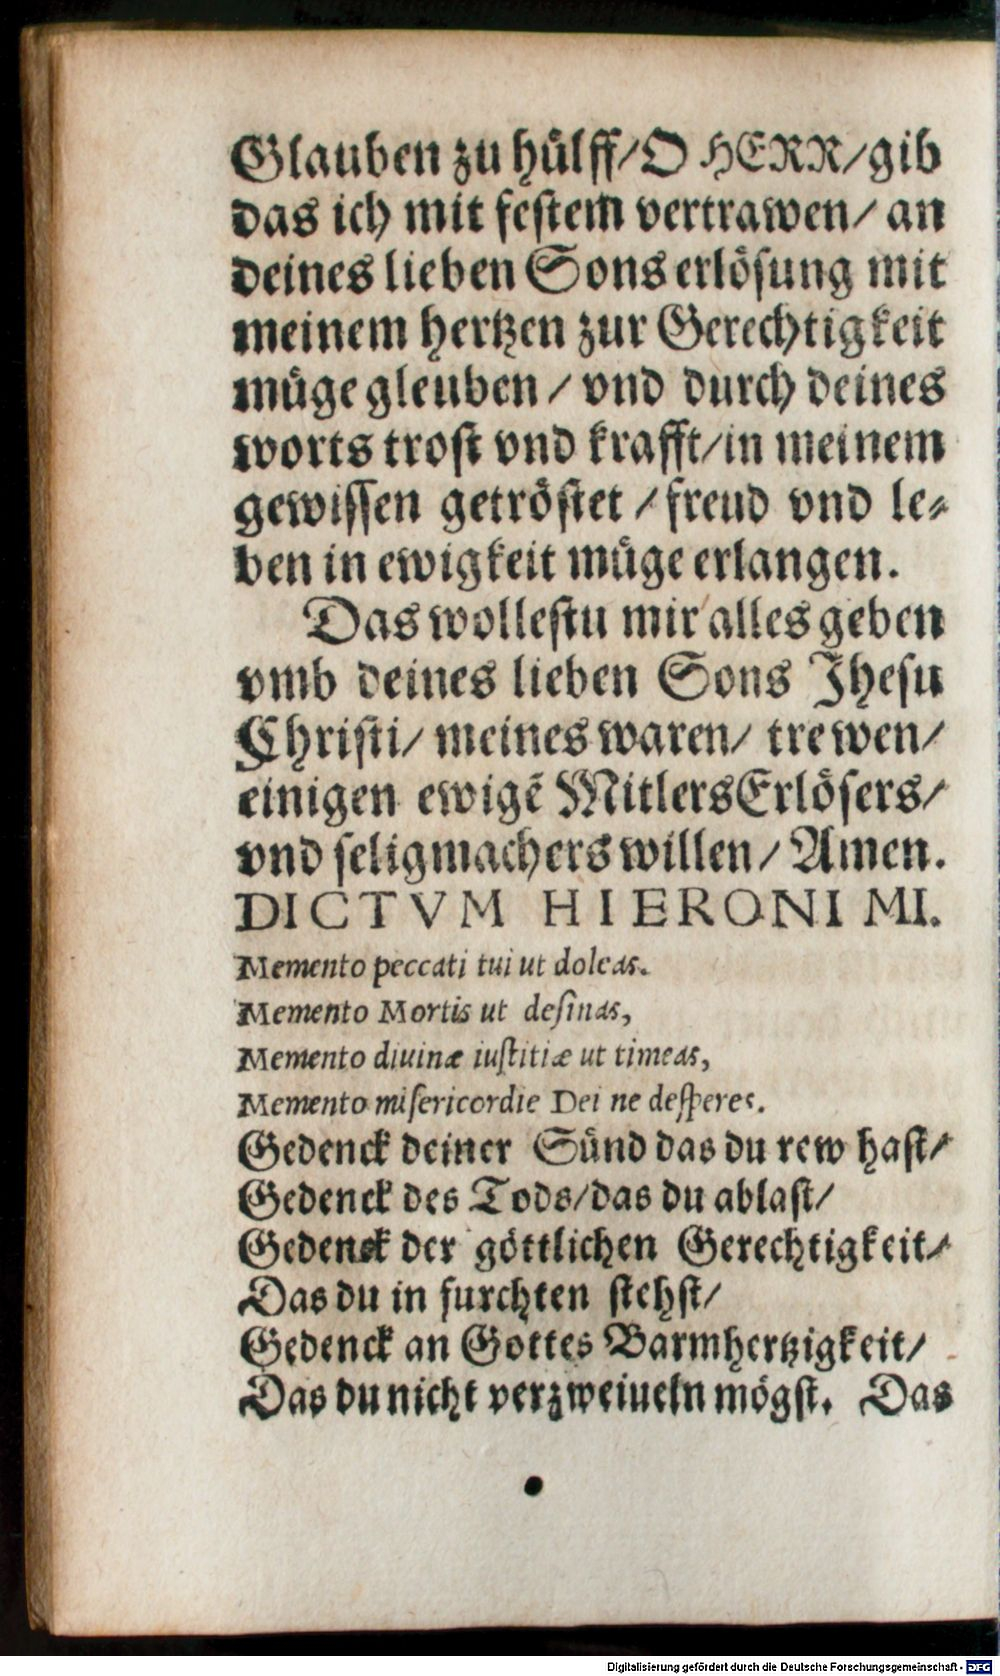 Glauben zu hülff/O HERR/gib
das ich mit festem vertrawen/ an
deines lieben Sons erlösung mit
meinem hertzen zur Gerechtigkeit
müge gleuben / vnd durch deines
worts trost vnd krafft/in meinem
gewissen getröstet / freud vnd le-
ben in ewigkeit müge erlangen.
Das wollestu mir alles geben
vmb deines lieben Sons Jhesu
Christi/ meines waren/ trewen/
einigen ewigē Mitlers Erlösers/
vnd seligmachers willen/ Amen.
DICTVM HIERONIMI.
Memento peccati tui ut doleas.
Memento Mortis ut desinas,
Memento diuinæ iustitiæ ut timeas,
Memento misericordie Dei ne desperes.
Gedenck deiner Sünd das du rew hast/
Gedenck des Tods/das du ablast/
Gedenck der göttlichen Gerechtigkeit/
Das du in furchten stehst/
Gedenck an Gottes Barmhertzigkeit/
Das du nicht verzweiueln mögst. Das
Digitalisierung gefördert durch die Deutsche Forschungsgemeinschaft - DFG